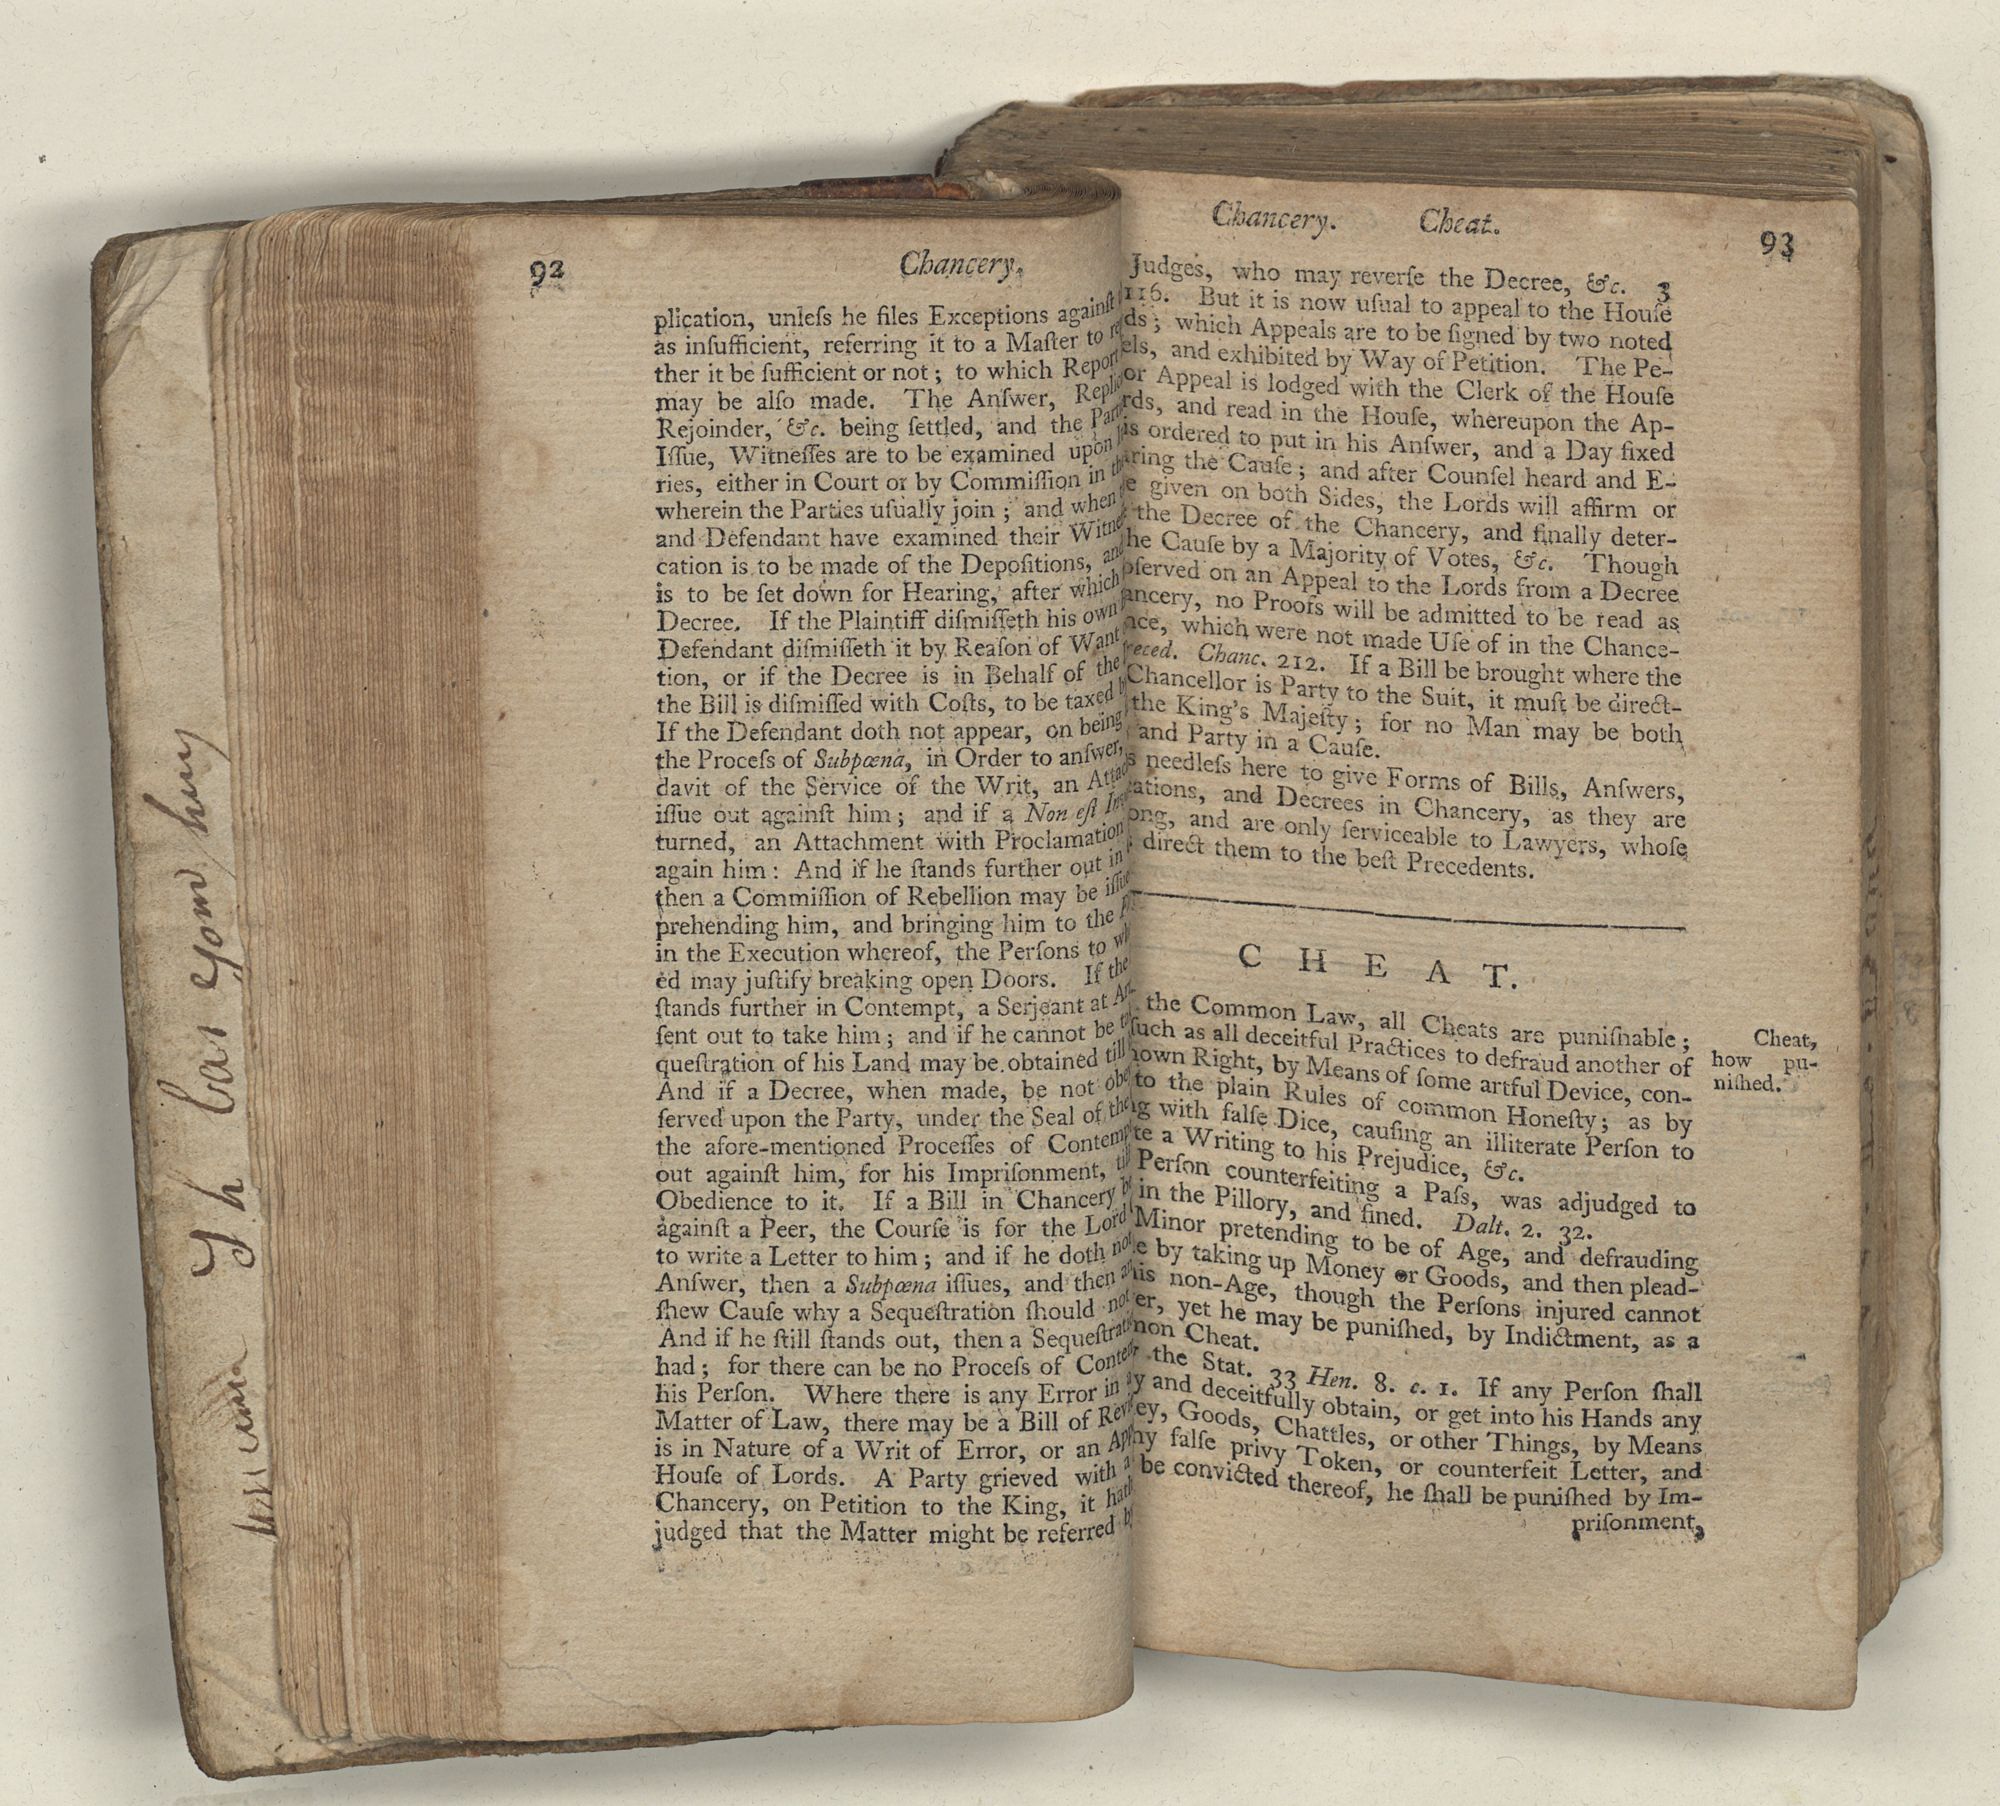 92
Chancery.
plication, unleſs he files Exceptions againſt
as inſufficient, referring it to a Maſter to
ther it be ſufficient or not; to which Report
may be alſo made. The Anſwer,
Rejoinder, &c. being ſettled, and the
Iſſue, Witneſſes are to be examined upon
ries, either in Court or by Commiſſion in
wherein the Parties uſually join; and when
and Defendant have examined their
cation is to be made of the Depoſitions, and
is to be ſet down for Hearing, after which
Decree. If the Plaintiff diſmiſſeth his own
Defendant diſmiſſeth it by Reaſon of Want
tion, or if the Decree is in Behalf of the
the Bill is diſmiſſed with Coſts, to be taxed
If the Defendant doth not appear, on being
the Proceſs of Subpœna, in Order to anſwer,
davit of the Service of the Writ, an
iſſue out againſt him; and if a Non eſt
turned, an Attachment with Proclamation
again him: And if he ſtands further out in
then a Commiſſion of Rebellion may be
prehending him, and bringing him to the
in the Execution whereof, the Perſons to
ed may juſtify breaking open Doors. If the
ſtands further in Contempt, a Serjeant at
ſent out to take him; and if he cannot be
queſtration of his Land may be obtained till
And if a Decree, when made, be not
ſerved upon the Party, under the Seal of the
the afore-mentioned Proceſſes of
out againſt him, for his Impriſonment,
Obedience to it. If a Bill in Chancery
againſt a Peer, the Courſe is for the Lord
to write a Letter to him; and if he doth not
Anſwer, then a Subpœna iſſues, and then
ſhew Cauſe why a Sequeſtration ſhould not
And if he ſtill ſtands out, then a
had; for there can be no Proceſs of
his Perſon. Where there is any Error in
Matter of Law, there may be a Bill of
is in Nature of a Writ of Error, or an
Houſe of Lords. A Party grieved with a
Chancery, on Petition to the King, it
judged that the Matter might be referred
Chancery. Cheat. 93
Judges, who may reverſe the Decree, &c. 3
116. But it is now uſual to appeal to the Houſe
ds; which Appeals are to be ſigned by two noted
els, and exhibited by Way of Petition. The Pe-
or Appeal is lodged with the Clerk of the Houſe
rds, and read in the Houſe, whereupon the Ap-
is ordered to put in his Anſwer, and a Day fixed
ring the Cauſe; and after Counſel heard and E-
e given on both Sides, the Lords will affirm or
the Decree of the Chancery, and finally deter-
he Cauſe by a Majority of Votes, &c. Though
ſerved on an Appeal to the Lords from a Decree
ancery, no Proofs will be admitted to be read as
nce, which were not made Uſe of in the Chance-
reced. Chanc. 212. If a Bill be brought where the
Chancellor is Party to the Suit, it muſt be direct-
the King's Majeſty; for no Man may be both
and Party in a Cauſe.
s needleſs here to give Forms of Bills, Anſwers,
ations, and Decrees in Chancery, as they are
ong, and are only ſerviceable to Lawyers, whoſe
direct them to the beſt Precedents.
CHEAT.
the Common Law, all Cheats are puniſhable;
ſuch as all deceitful Practices to defraud another of
nown Right, by Means of ſome artful Device, con-
to the plain Rules of common Honeſty; as by
g with falſe Dice, cauſing an illiterate Perſon to
te a Writing to his Prejudice, &c.
Perſon counterfeiting a Paſs, was adjudged to
in the Pillory, and fined. Dalt. 2. 32.
Minor pretending to be of Age, and defrauding
e by taking up Money or Goods, and then plead-
is non-Age, though the Perſons injured cannot
er, yet he may be puniſhed, by Indictment, as a
mon Cheat.
the Stat. 33 Hen. 8. c. 1. If any Perſon ſhall
y and deceitfully obtain, or get into his Hands any
ey, Goods, Chattles, or other Things, by Means
ny falſe privy Token, or counterfeit Letter, and
be convicted thereof, he ſhall be puniſhed by Im-
priſonment,
Cheat,
how pu-
niſhed.